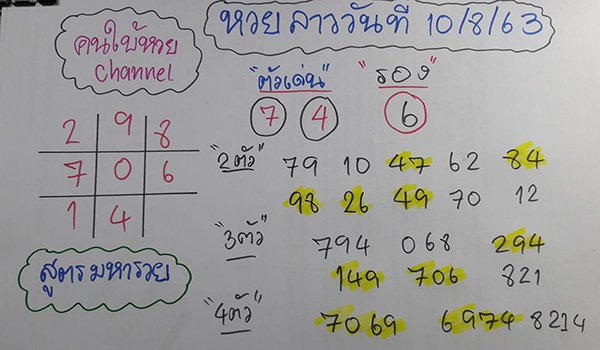 คนใบ้หวย
Channel
หวย ลาววันที่ 10/8/63
"ตัวเด่น" "รอง"
7 4 6
2 9 8
7 0 6
1 4
"2ตัว" 79 10 47 62 84
98 26 49 70 12
"3ตัว" 794 068 294
149 706 821
"4ตัว" 7069 6974 8214
สูตรมหารวย